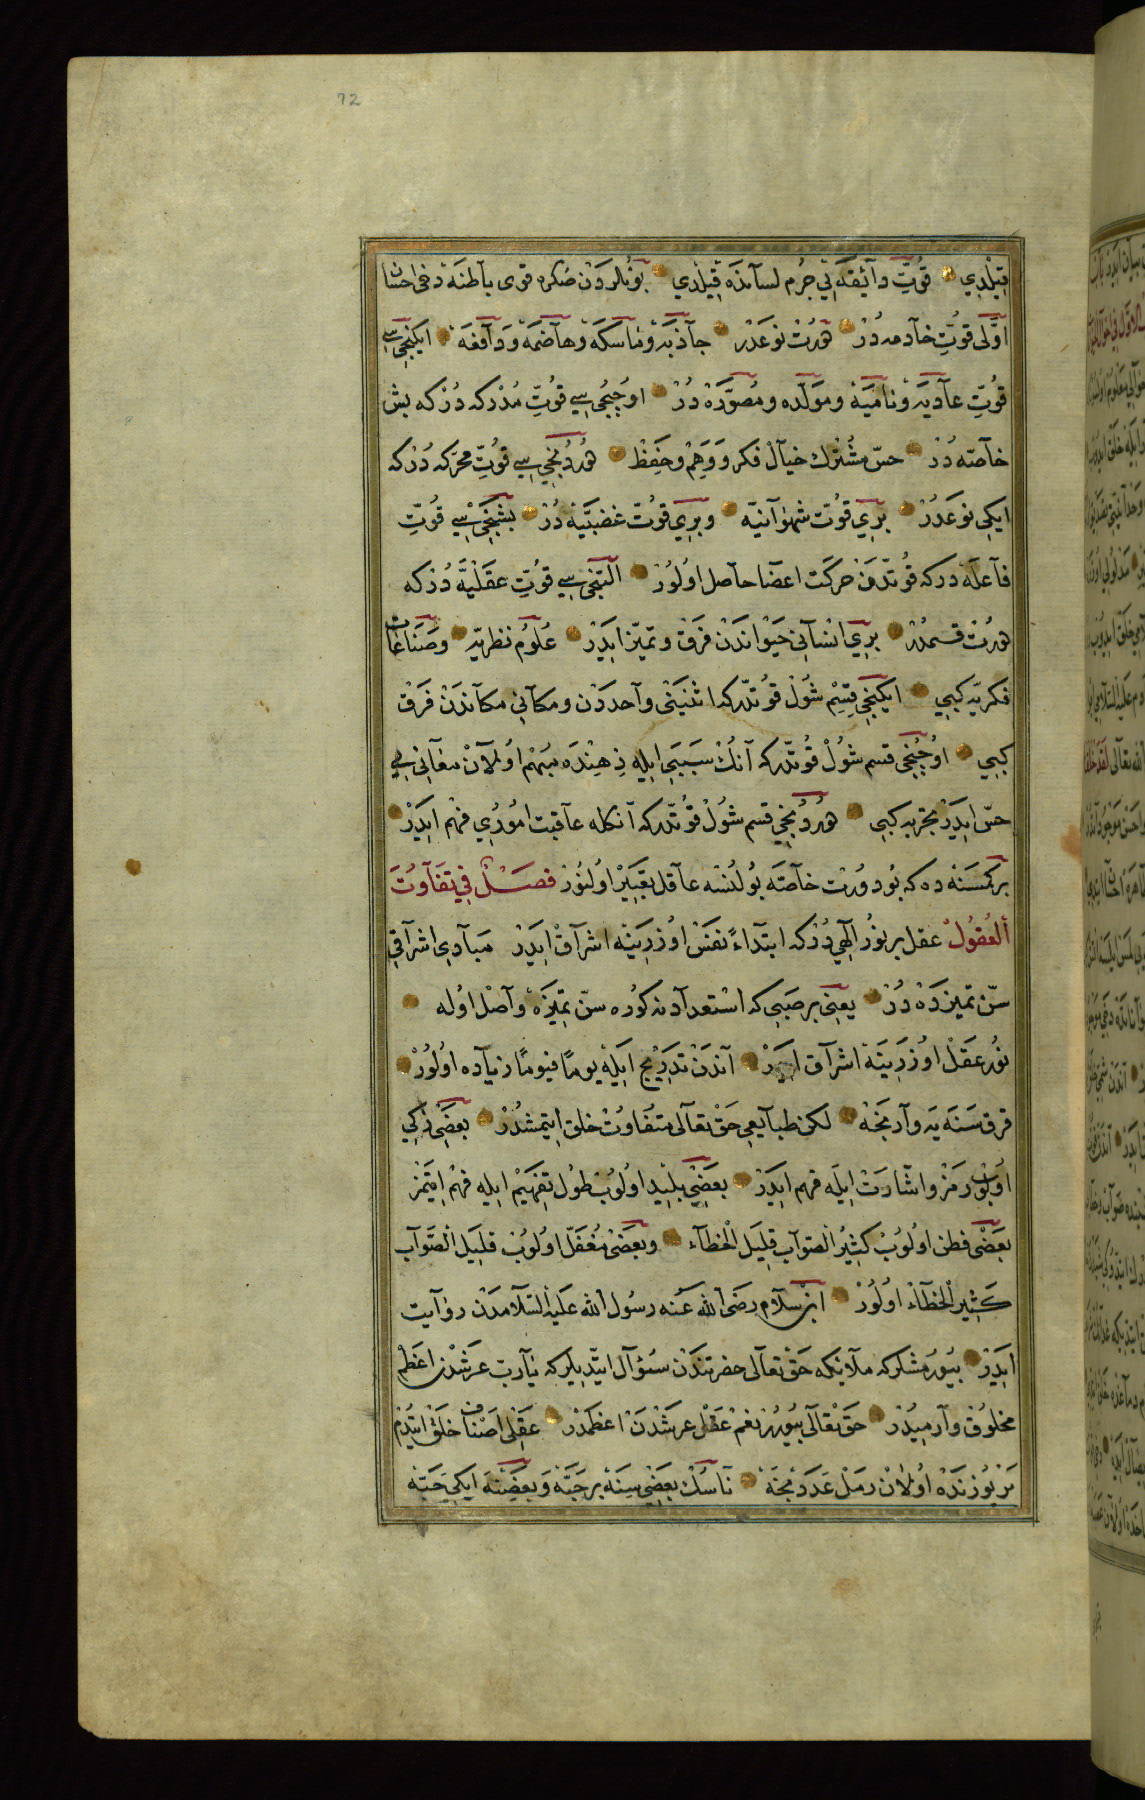 72
قیلدی قوّت ذآئقه یی جرم لسآنده قیلدی بونلردن صکره قوی بآطنه دخی احسان
اوّلی قوّت خآدمه در هورت نوعدر جآذبه و مآسكه و هآضمه و دآفعه ایكنجی سی
قوّت غآدیه و نآمیه و مولّده و مصوّره در اوچنجی سی قوّت مدركه در كه بش
خآصّه در حسّ مشترك خیآل فكر و وهم و حفظ دوردنجی سی قوّت محرّكه در كه
ایكی نوعدر بری قوّت شهوآنیّه و بری قوّت غضبیّه در بشنجی سی قوّت
فآعله در كه قوّتدن حركت اعضآ حآصل اولور التنجی سی قوّت عقلیّه در كه
دورت قسمدر بری انسآنی حیوآندن فرق و تمییز ایدر علوم نظریّه و صناعات
فكریّه كبی ایكنجی قسم شول قوّتدر كه اثنینی وآحددن و مكآنی مكآندن فرق
كبی اوچنجی قسم شول قوّتدر كه آنك سببی ایله ذهنده مبهم اولآن معآنی یی
حسّ ایدر تجربه كبی دوردنجی قسم شول قوّتدر كه آنكله عآقبت اموری فهم ایدر
بر كمسنه ده كه بو دورت خآصّه بولنسه عآقل تعبیر اولنور فصل فی تفآوت
العقول عقل بر نور الهی در كه ابتدآءً نفس اوزرینه اشرآق ایدر مبآدی اشرآقی
سنّ تمییزده در یعنی بر صبی كه استعدآدنه كوره سنّ تمییزه وآصل اوله
نور عقل اوزرینه اشرآق ایدر آندن تدریج ایله یومًا فیومًا زیآده اولور
قرق سنه یه وآرنجه لكن طبآیعی حق تعآلی متفاوت خلق ایتمشدر بعضی ذكی
اولوب رمز و اشآرت ایله فهم ایدر بعضی بلید اولوب طول تفهیم ایله فهم ایتمز
بعضی فطن اولوب كثیر الصّوآب قلیل الخطآء و بعضی مغفّل اولوب قلیل الصّوآب
كثیر الخطآء اولور ابن سلآم رضی الله عنه رسول الله علیه السّلآمدن روآیت
ایدر بیورمشلر كه ملآئكه حق تعآلی حضرتندن سؤآل ایتدیلر كه یآ رب عرشدن اعظم
مخلوق وآر میدر حق تعآلی بیورر نعم عقل عرشدن اعظمدر عقلی اصناف خلق ایتدم
یر یوزنده اولآن رمل عددنجه نآسك بعضی سنه بر حبّه و بعضنه ایكی حبّه